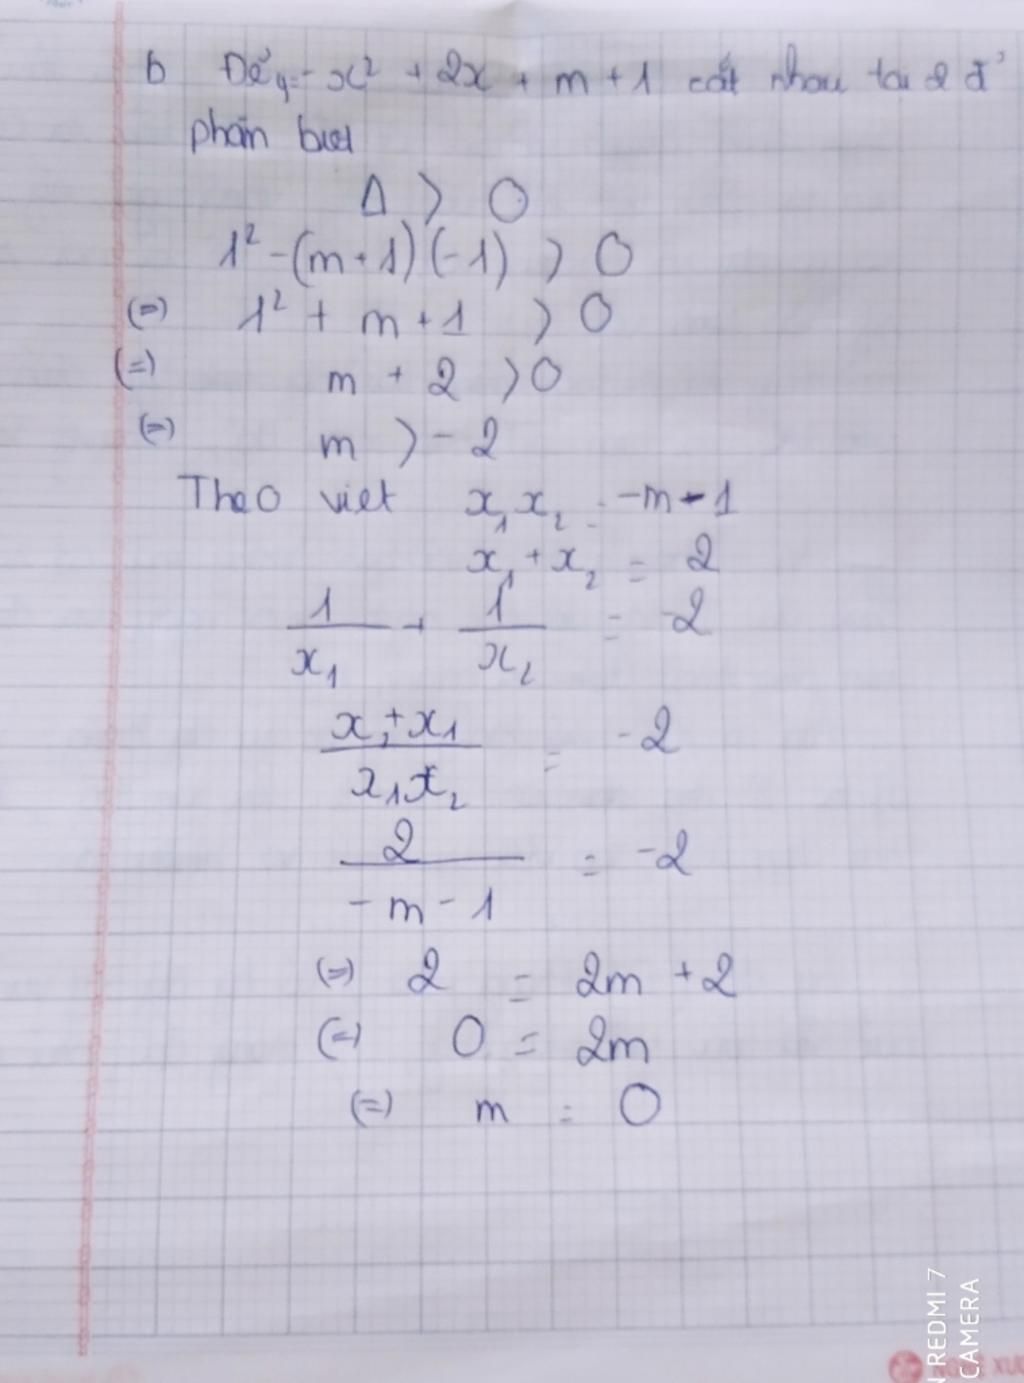 b Để y=-x² + 2x + m + 1 cắt nhau tại 2 đ'
phân biệt
Δ > 0
1² - (m+1)(-1) > 0
(=) 1² + m + 1 > 0
(=) m + 2 > 0
(=) m > -2
Theo viet x₁x₂ = -m - 1
x₁ + x₂ = 2
1/x₁ + 1/x₂ = -2
(x₂+x₁)/(x₁x₂) = -2
2/(-m - 1) = -2
(=) 2 = 2m + 2
(=) 0 = 2m
(=) m = 0
REDMI 7
CAMERA